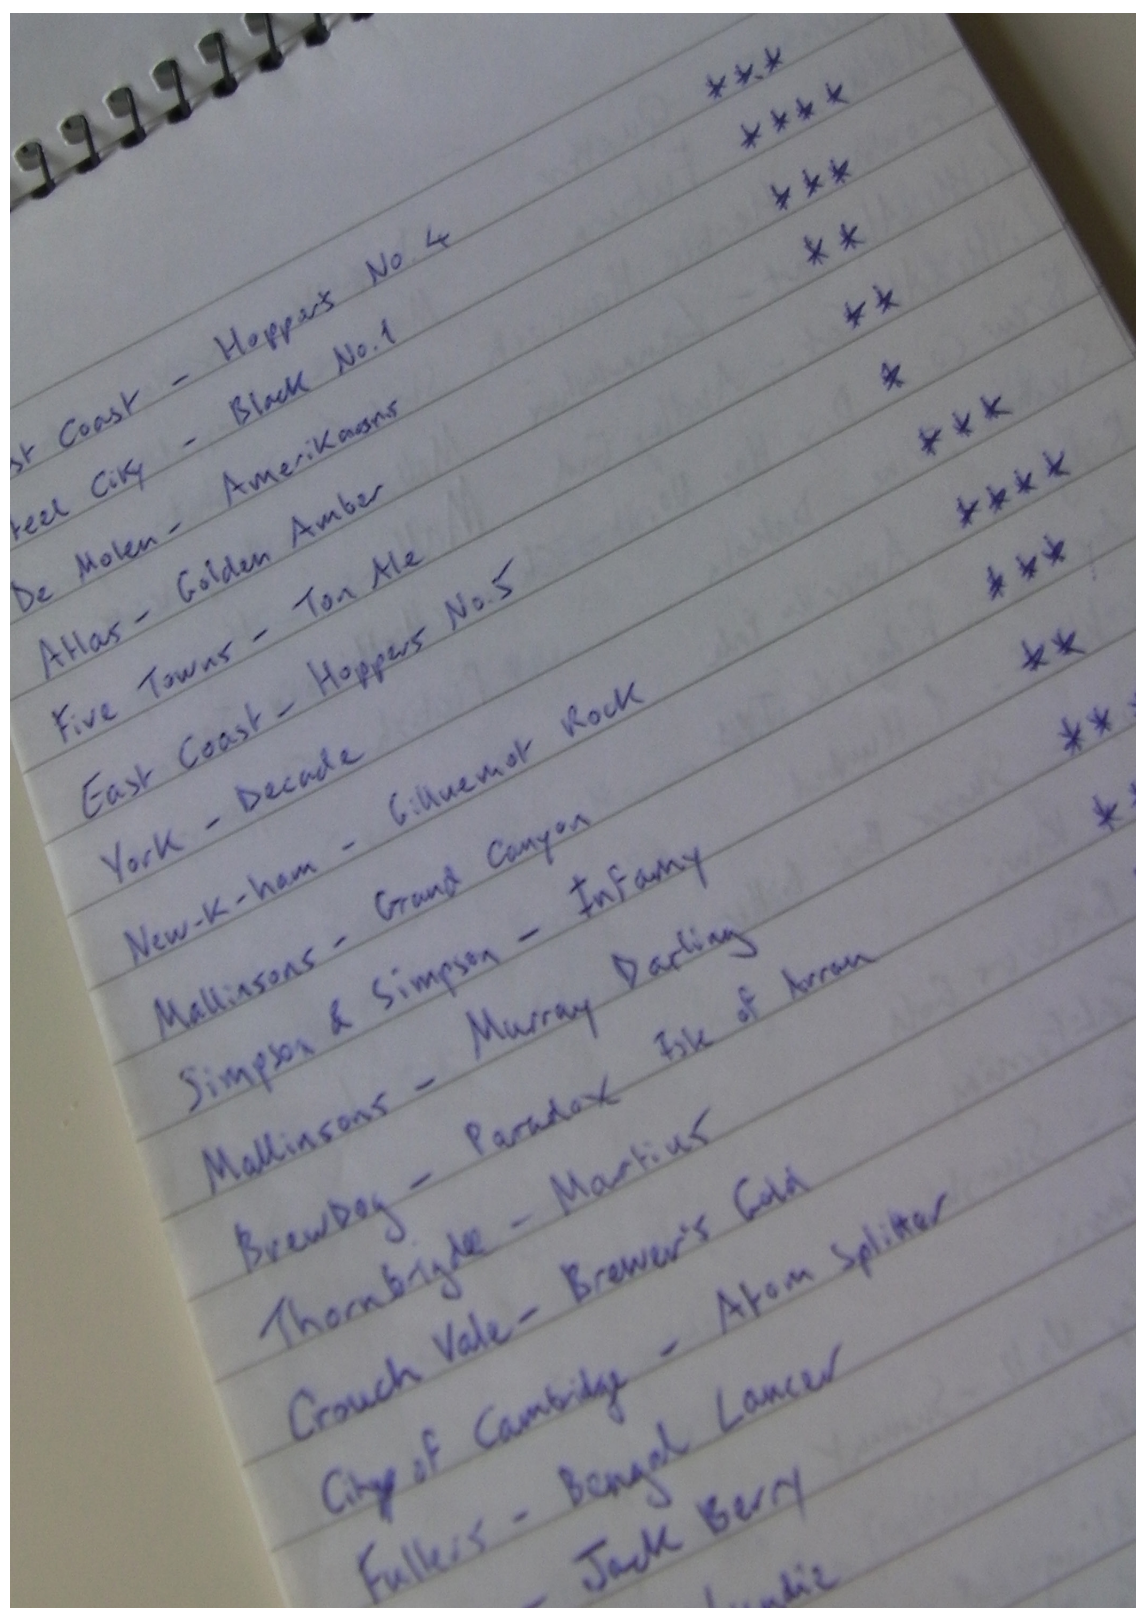 st Coast - Hoppers No.4 ***
teel City - Black No.1 ****
De Molen - Amerikaans ***
Atlas - Golden Amber **
Five Towns - Ton Ale **
East Coast - Hoppers No.5 *
York - Decade ***
New-K-ham - Gilluemot Rock ****
Mallinsons - Grand Canyon ***
Simpson & Simpson - Infamy **
Mallinsons - Murray Darling **
BrewDog - Paradox Isle of Arran **
Thornbrigde - Martius
Crouch Vale - Brewer's Gold
City of Cambridge - Atom Splitter
Fullers - Bengal Lancer
- Jack Berry